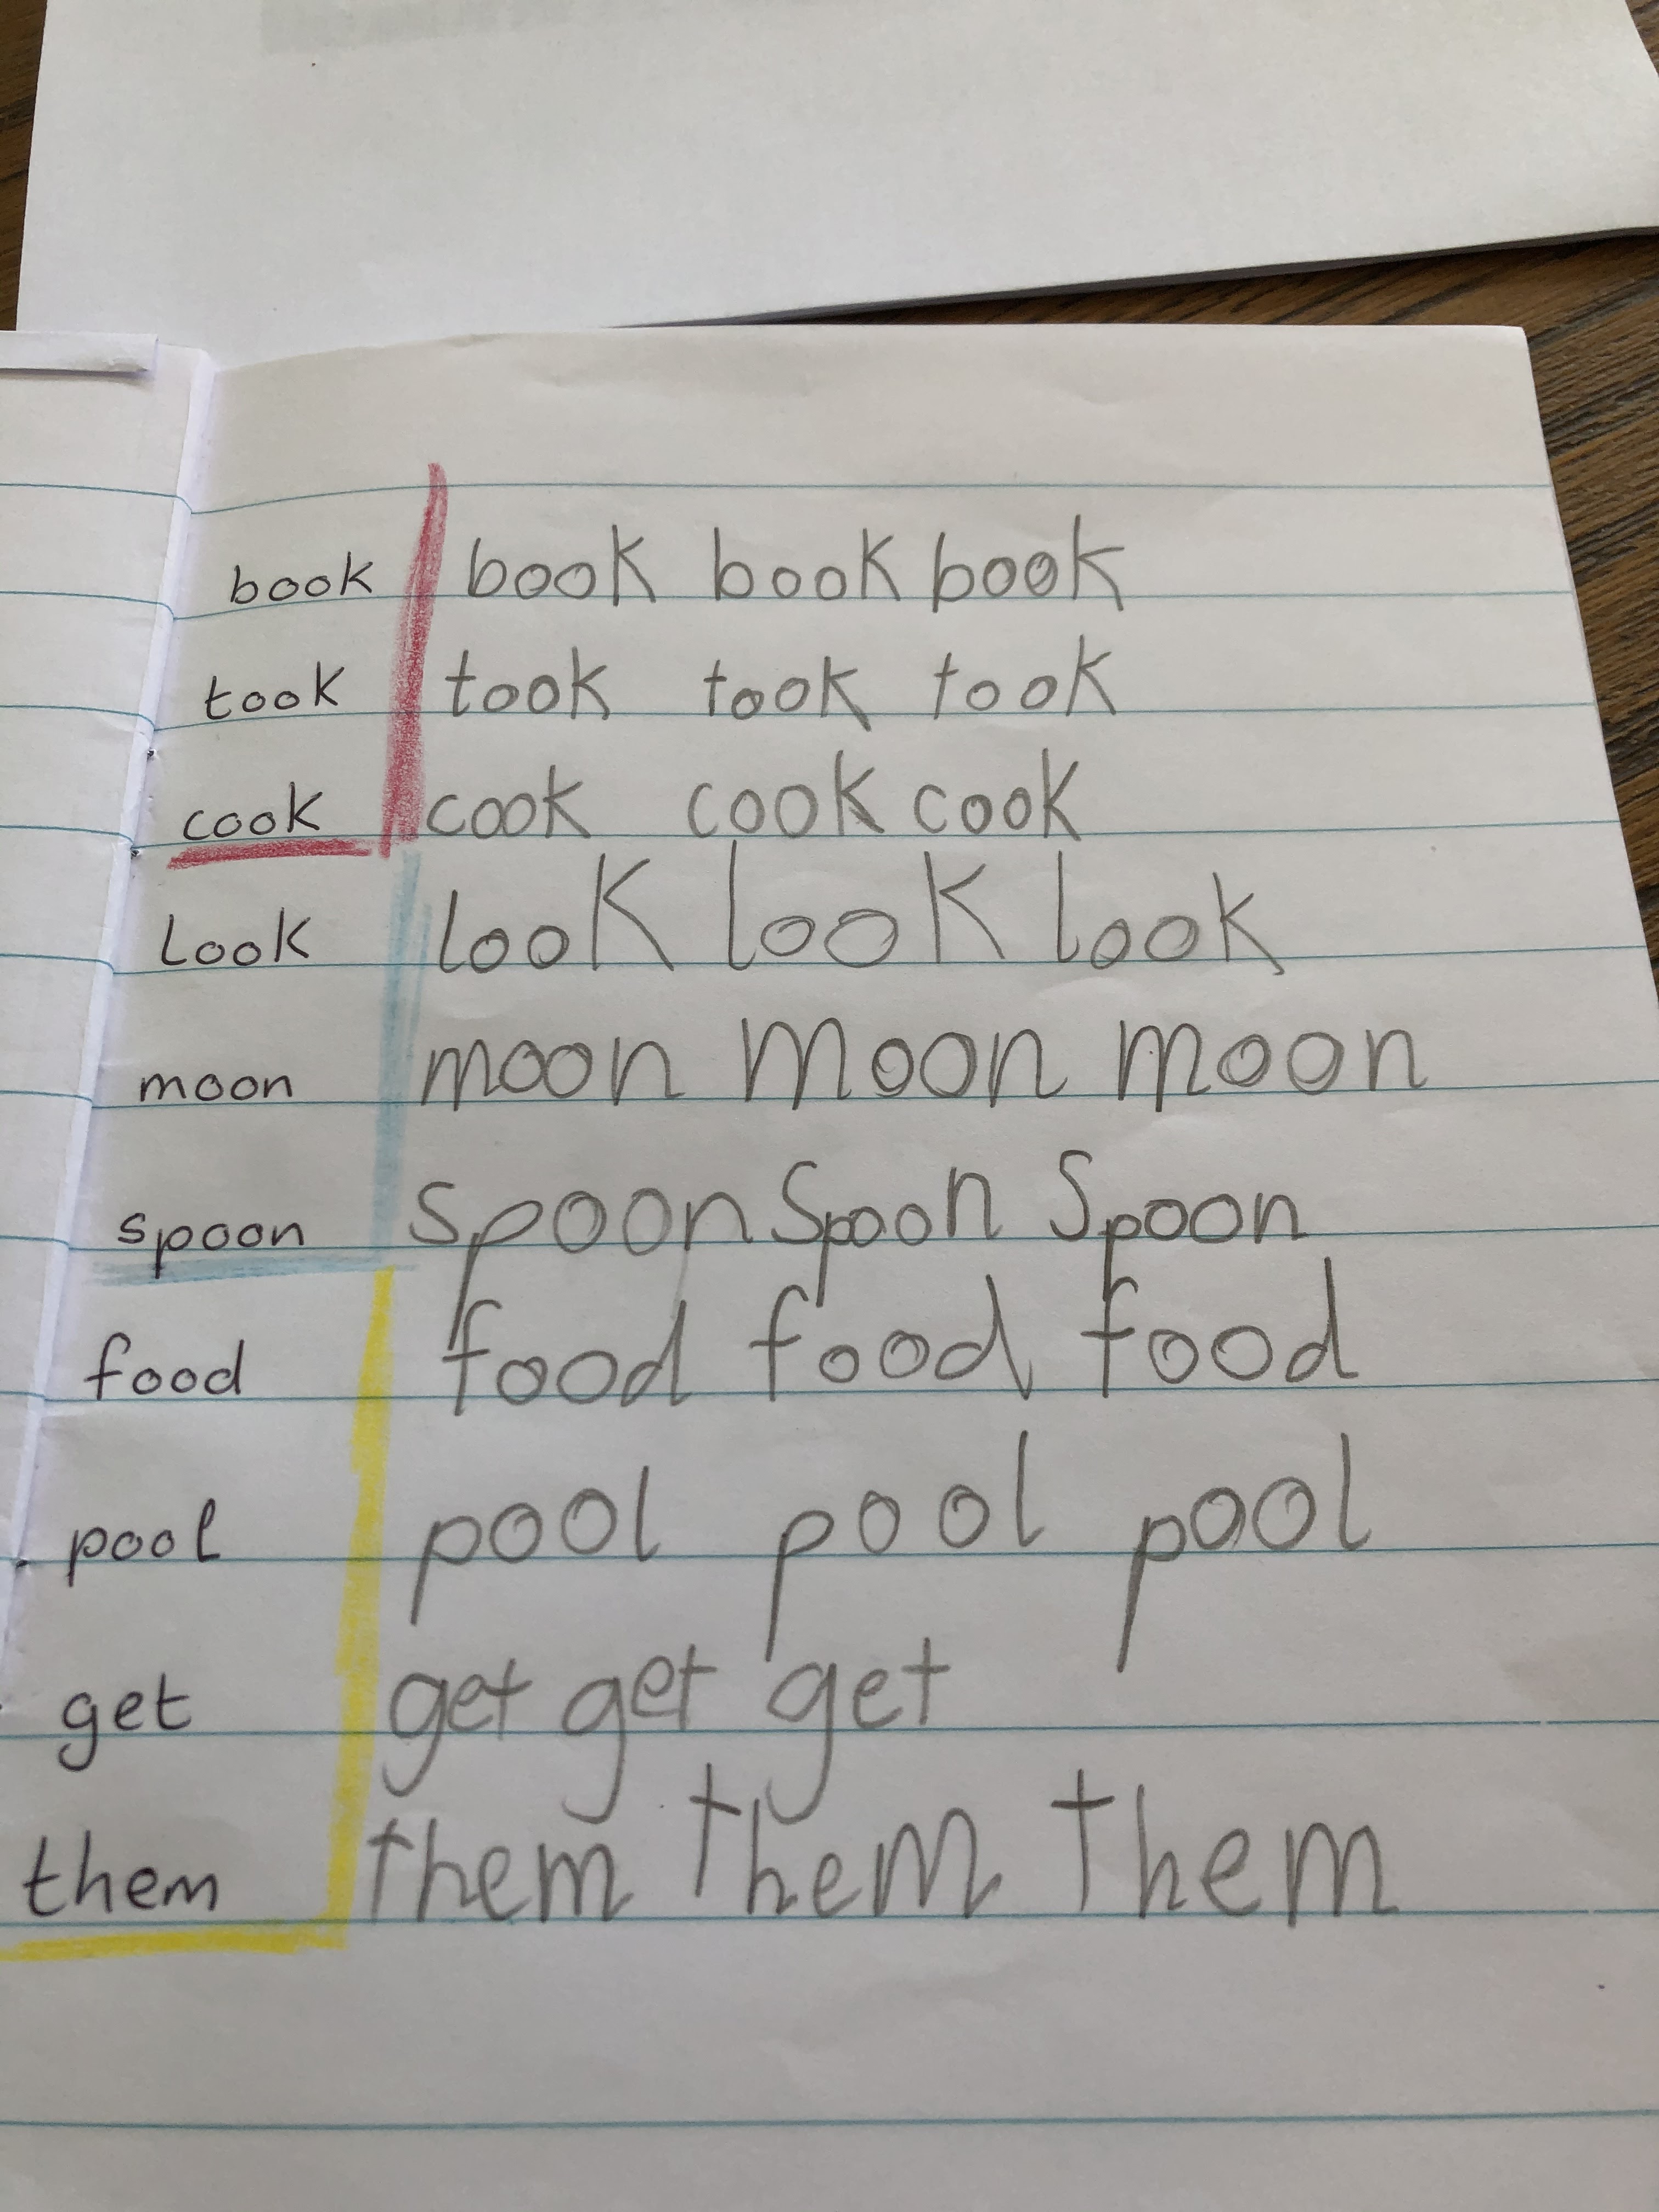 book book book book
took took took took
cook cook cook cook
look look look look
moon moon moon moon
spoon spoon spoon spoon
food food food food
pool pool pool pool
get get get get
them them them them